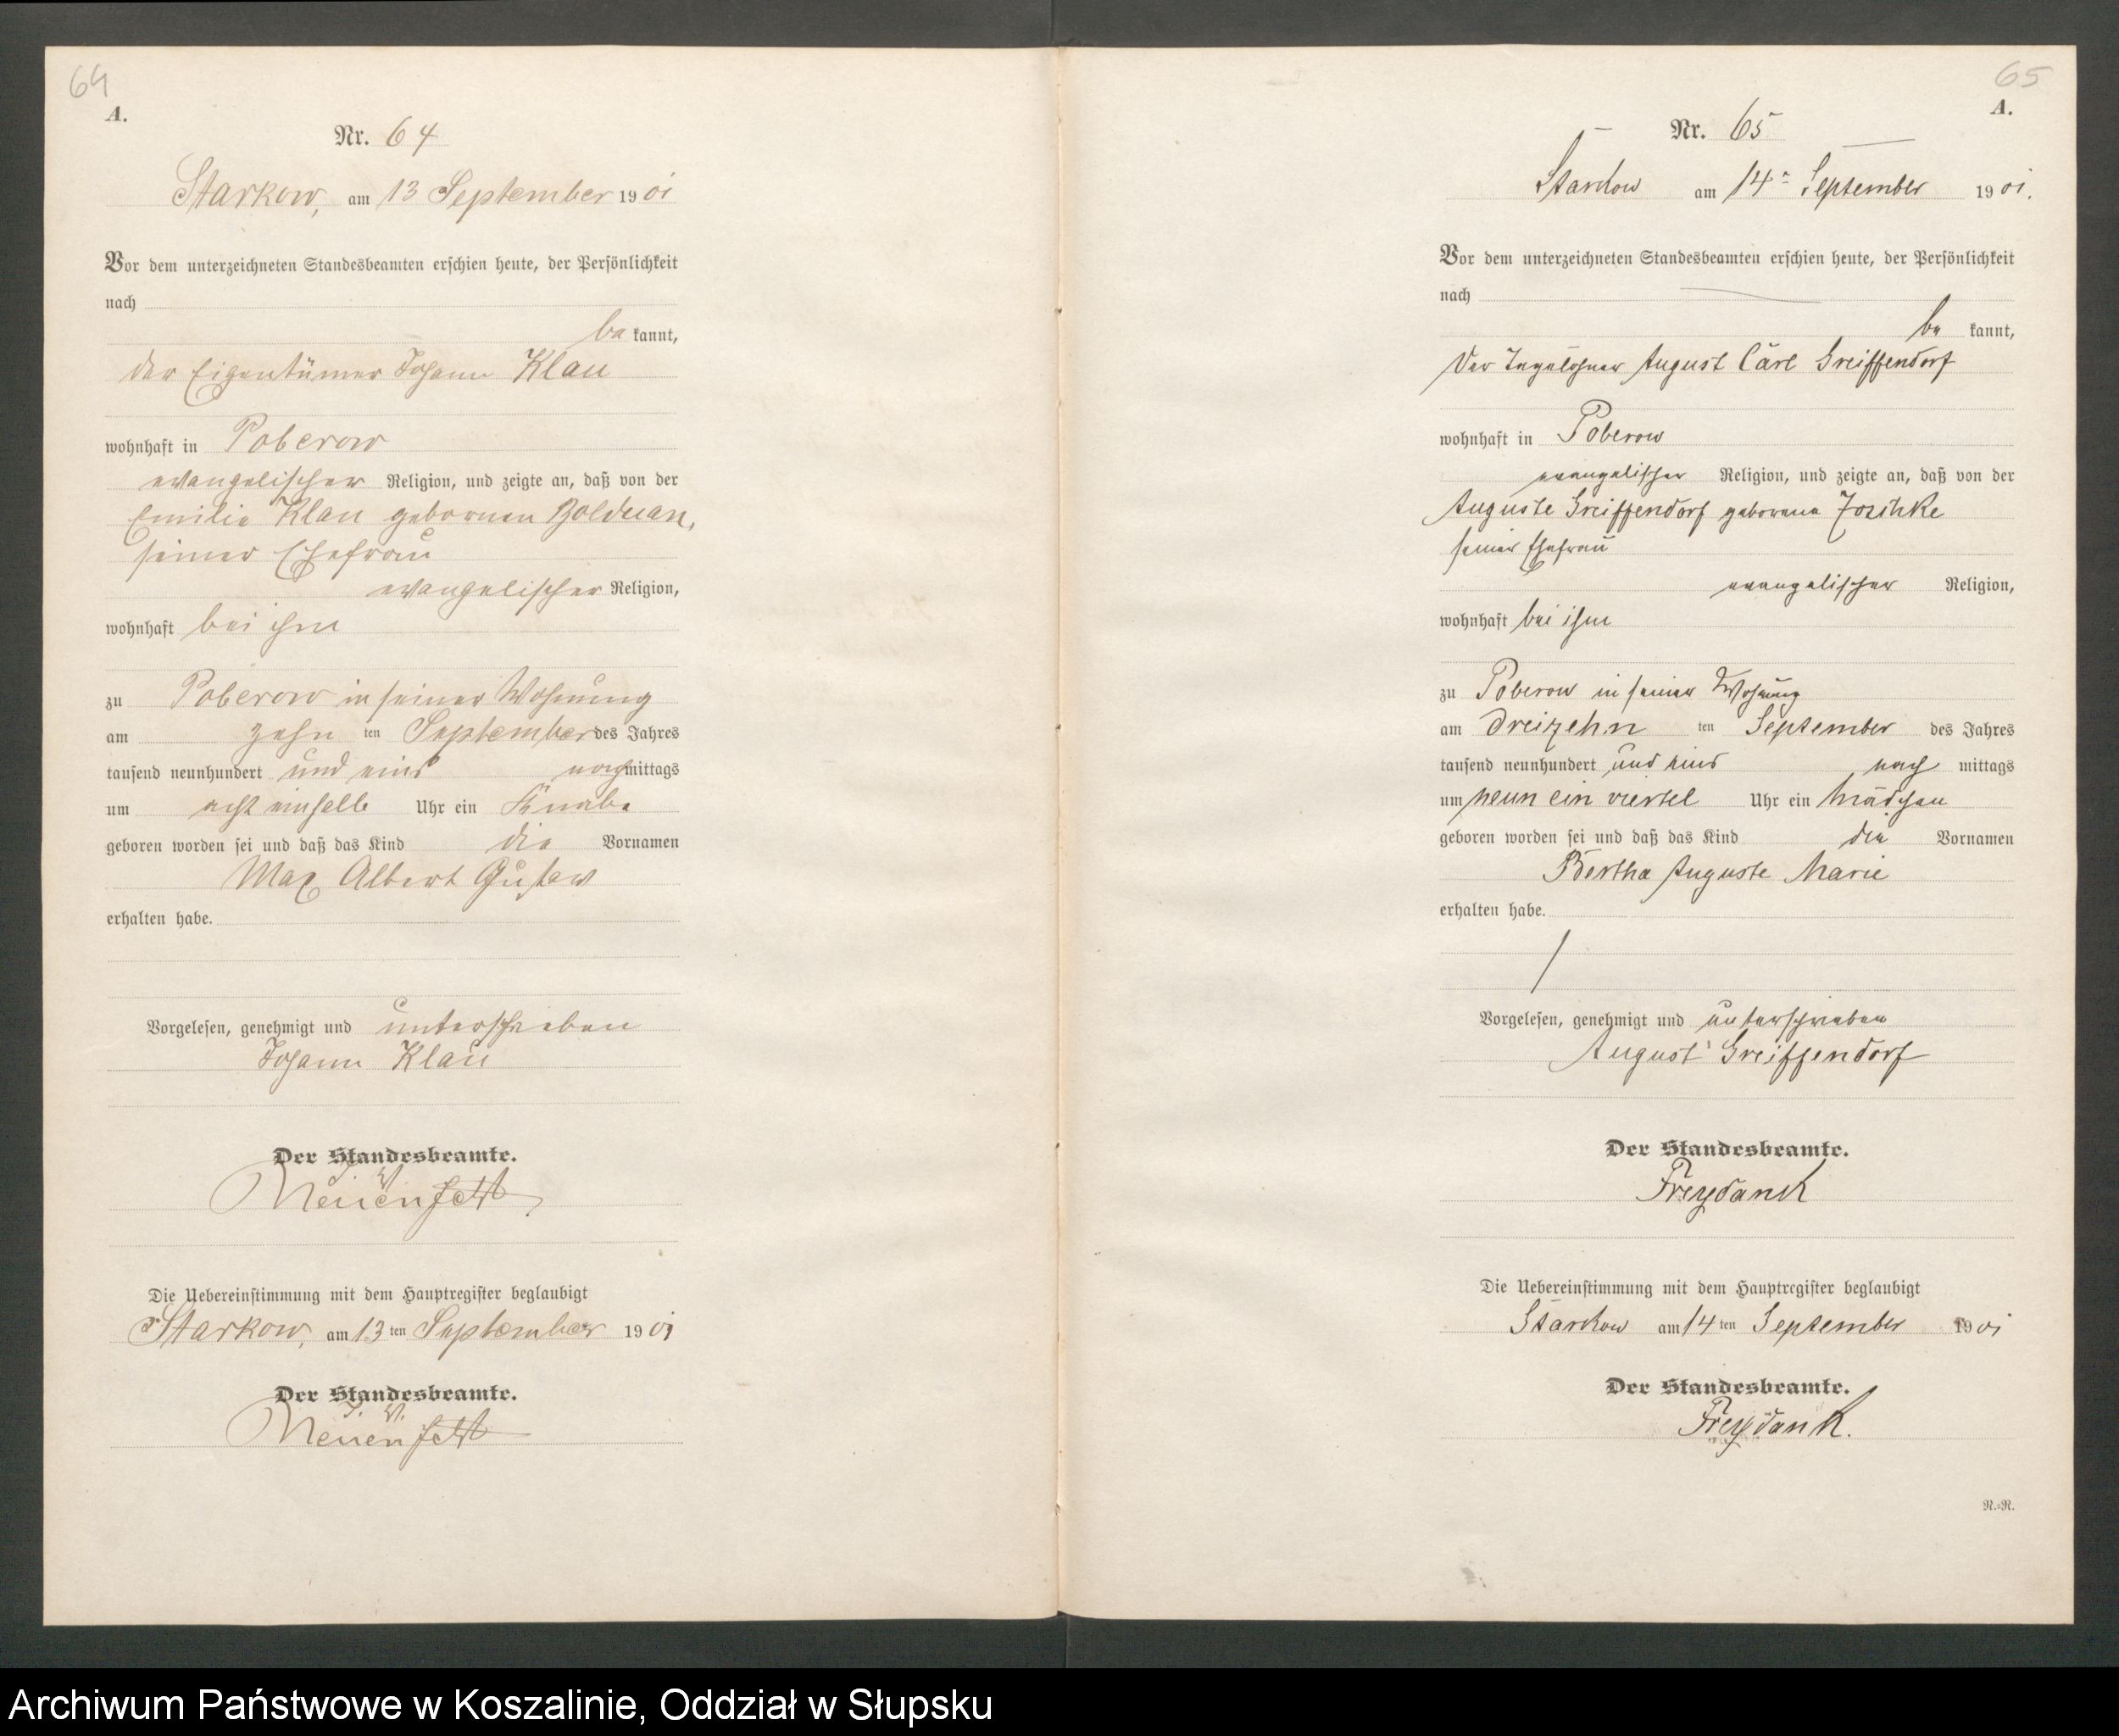 64
A.
Nr. 64
Starkow, am 13 September 1901
Vor dem unterzeichneten Standesbeamten erschien heute, der Persönlichkeit
nach
be kannt,
der Eigentümer Johann Klau
wohnhaft in Poberow
evangelischer Religion, und zeigte an, daß von der
Emilie Klau gebornen Bolduan,
seiner Ehefrau
evangelischer Religion,
wohnhaft bei ihm
zu Poberow in seiner Wohnung
am zehn ten September des Jahres
tausend neunhundert und eins nachmittags
um acht einhalb Uhr ein Knabe
geboren worden sei und daß das Kind die Vornamen
Max Albert Gustav
erhalten habe.
Vorgelesen, genehmigt und unterschrieben
Johann Klau
Der Standesbeamte.
Die Uebereinstimmung mit dem Hauptregister beglaubigt
Starkow, am 13 ten September 1901
Der Standesbeamte.
65
A.
Nr. 65
Starkow am 14n September 1901.
Vor dem unterzeichneten Standesbeamten erschien heute, der Persönlichkeit
nach
be kannt,
Der Tagelöhner August Carl Greiffendorf
wohnhaft in Poberow
evangelischer Religion, und zeigte an, daß von der
Auguste Greiffendorf geborene
seiner Ehefrau
evangelischer Religion,
wohnhaft bei ihm
zu Poberow in seiner Wohnung
am dreizehn ten September des Jahres
tausend neunhundert und eins nach mittags
um neun ein viertel Uhr ein Mädchen
geboren worden sei und daß das Kind die Vornamen
Bertha Auguste Marie
erhalten habe.
Vorgelesen, genehmigt und unterschrieben
August Greiffendorf
Der Standesbeamte.
Freydank
Die Uebereinstimmung mit dem Hauptregister beglaubigt
Starkow am 14 ten September 1901
Der Standesbeamte.
Freydank.
R.=R.
Archiwum Państwowe w Koszalinie, Oddział w Słupsku